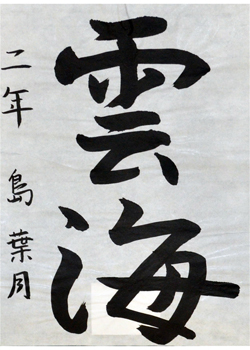 雲海
二年 島 葉月